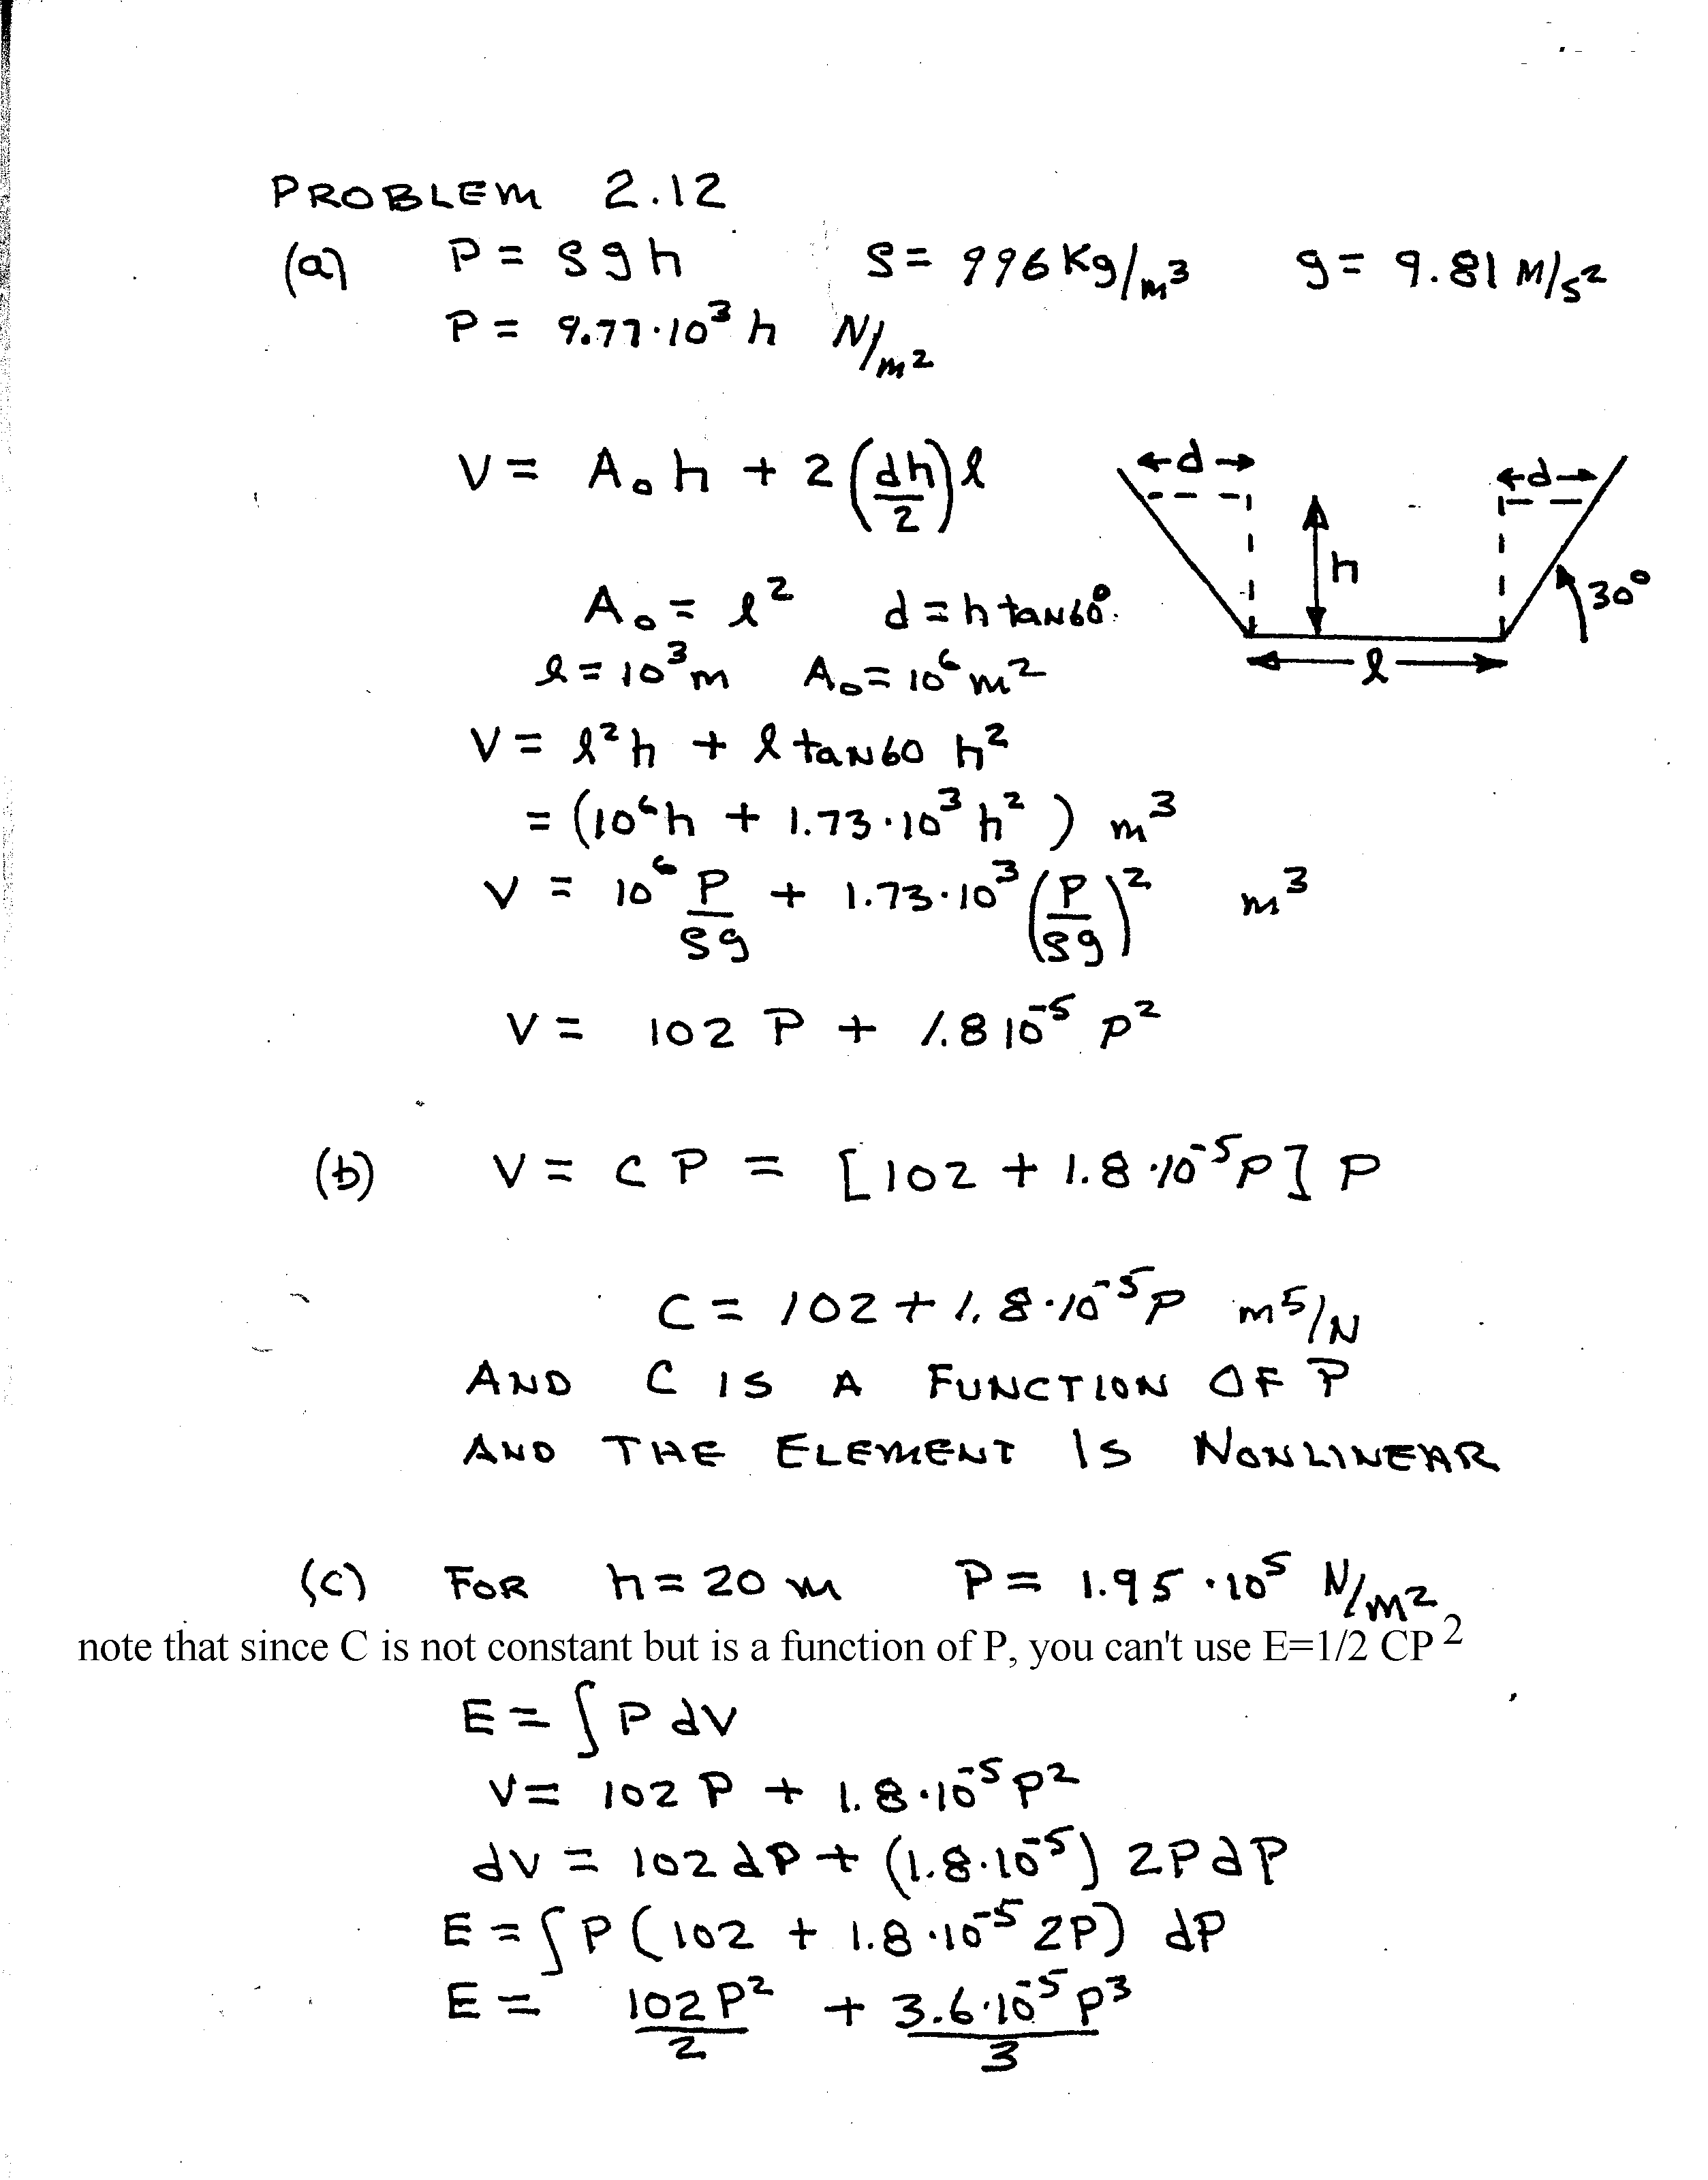 PROBLEM 2.12
(a) P = ρgh ρ = 996 Kg/m³ g = 9.81 M/s²
P = 9.77·10³ h N/m²
V = A₀h + 2(dh/2)ℓ
←d→ ←d→
h
A₀ = ℓ² d = h tan60°
30°
ℓ = 10³m A₀ = 10⁶ m²
ℓ
V = ℓ²h + ℓ tan60 h²
= (10⁶h + 1.73·10³ h²) m³
V = 10⁶ P/ρg + 1.73·10³ (P/ρg)² m³
V = 102 P + 1.8 10⁻⁵ P²
(b) V = C P = [102 + 1.8·10⁻⁵P] P
C = 102 + 1.8·10⁻⁵P m⁵/N
AND C IS A FUNCTION OF P
AND THE ELEMENT IS NONLINEAR
(c) FOR h = 20 m P = 1.95·10⁵ N/m²
note that since C is not constant but is a function of P, you can't use E=1/2 CP²
E = ∫P dV
V = 102 P + 1.8·10⁻⁵P²
dV = 102 dP + (1.8·10⁻⁵) 2PdP
E = ∫P(102 + 1.8·10⁻⁵ 2P) dP
E = 102P²/2 + 3.6·10⁻⁵P³/3